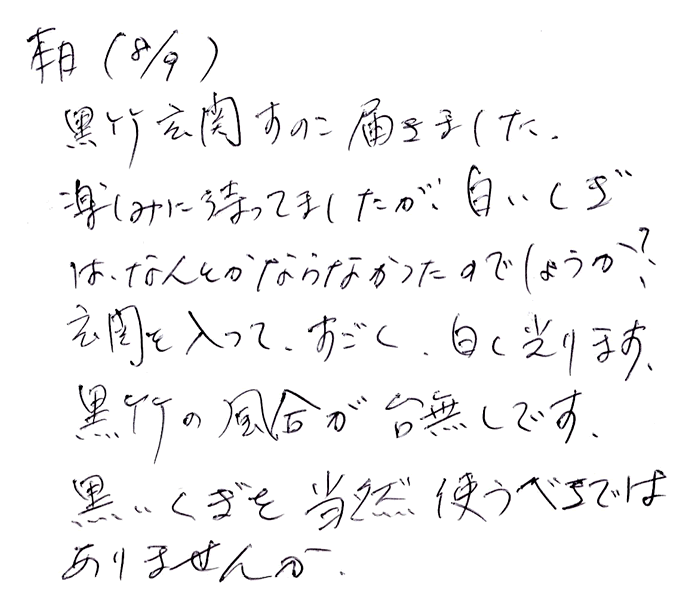 本日(8/9)
黒竹玄関すのこ届きました.
楽しみに待ってましたが、白いくぎ
は、なんとかならなかったのでしょうか?
玄関を入って、すごく、白く光ります、
黒竹の風合が台無しです、
黒いくぎを当然使うべきでは
ありませんか.